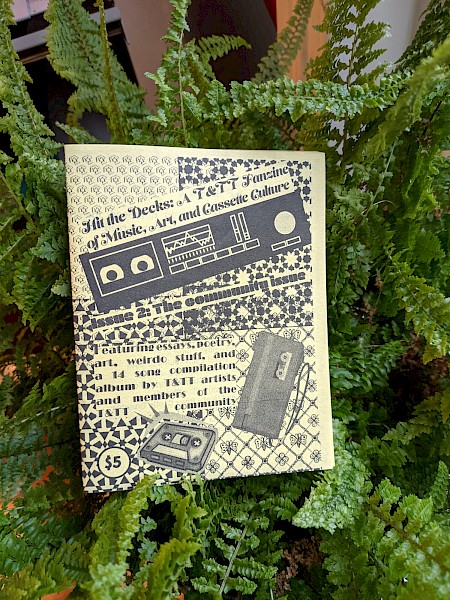 Hit the Decks: A T&TT Fanzine
of Music, Art, and Cassette Culture
Issue 2: The Community Issue
Featuring essays, poetry,
art, weirdo stuff, and
a 14 song compilation
album by T&TT artists
and members of the
T&TT community
$5